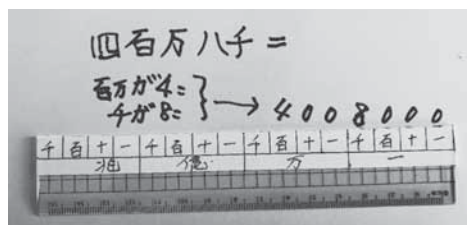 四百万八千=
百万が4=
千が8=
} → 4008000
千 百 十 一 千 百 十 一 千 百 十 一 千 百 十 一
兆 億 万 一